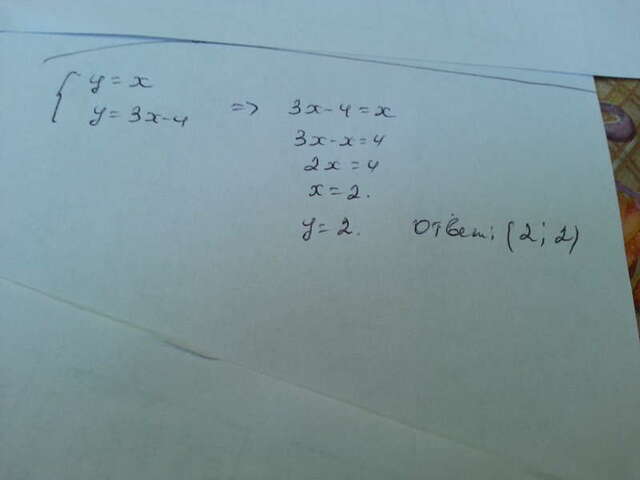 { y = x
y = 3x-4 => 3x-4 = x
3x-x=4
2x = 4
x = 2.
y = 2. Ответ: (2; 2)